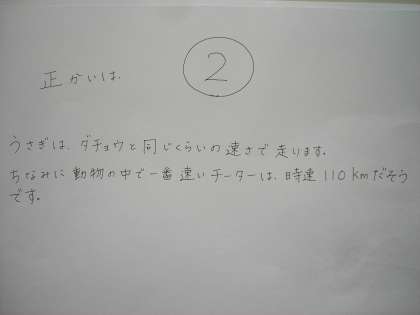 正かいは 2
うさぎは、ダチョウと同じくらいの速さで走ります。
ちなみに動物の中で一番速いチーターは、時速110kmだそう
です。